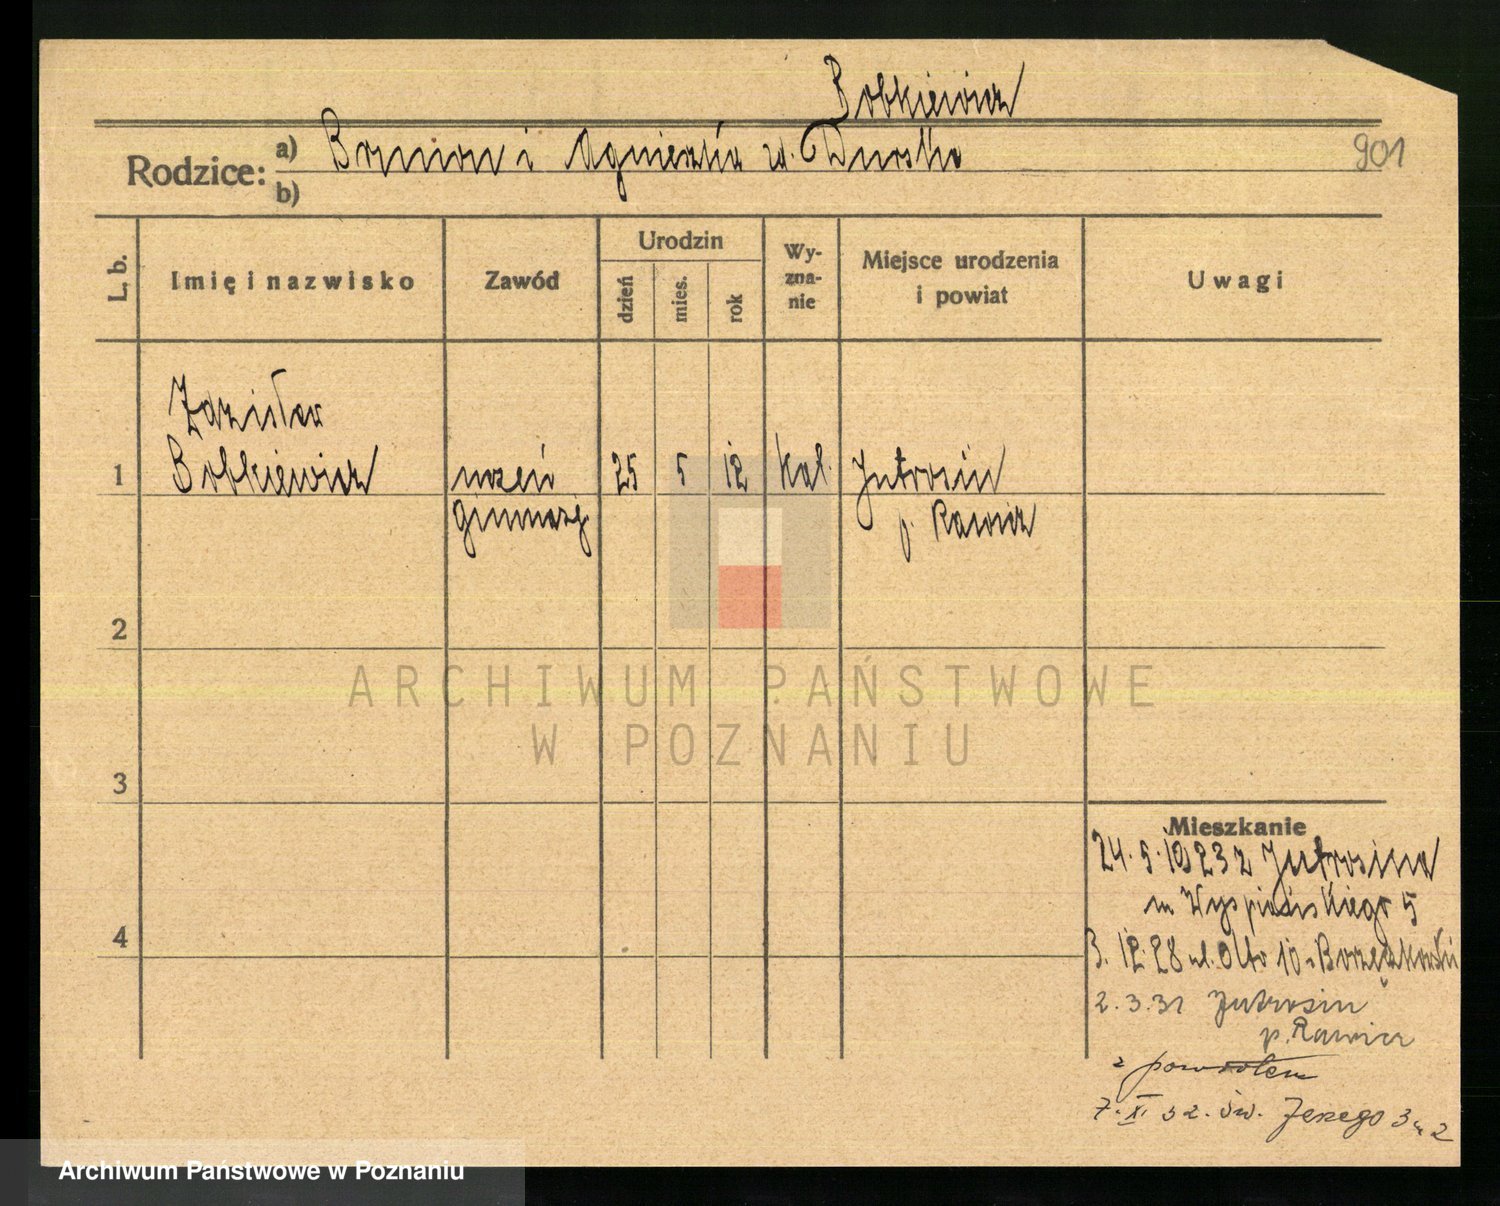 Bobkiewicz
Rodzice: a) i Agnieszka
b)
901
L. b.
Imię i nazwisko
Zawód
Urodzin
dzień
mies.
rok
Wy-
zna-
nie
Miejsce urodzenia
i powiat
Uwagi
Zdzisław
1 Bobkiewicz uczeń 25 5 12 kat. Jutrosin
gimnazj. p. Rawicz
2
3
4
Mieszkanie
24.5.1923 z Jutrosina
Wyspiańskiego 5
3.12.28 ul. 10
2.3.31 Jutrosin
p. Rawicz
z powrotem
7. XI. 32. św. Jerzego 3
ARCHIWUM PAŃSTWOWE
W POZNANIU
Archiwum Państwowe w Poznaniu